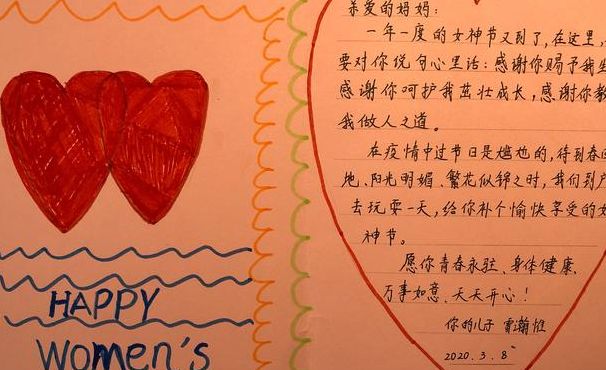 HAPPY
Women's
亲爱的妈妈：
一年一度的女神节又到了,在这里,
要对你说句心里话：感谢你赐予我生
感谢你呵护我茁壮成长,感谢你教
我做人之道。
在疫情中过节日是尴尬的,待到春回
地、阳光明媚、繁花似锦之时,我们到户
去玩耍一天,给你补个愉快享受的女
神节。
愿你青春永驻、身体健康、
万事如意、天天开心！
你的儿子
2020.3.8